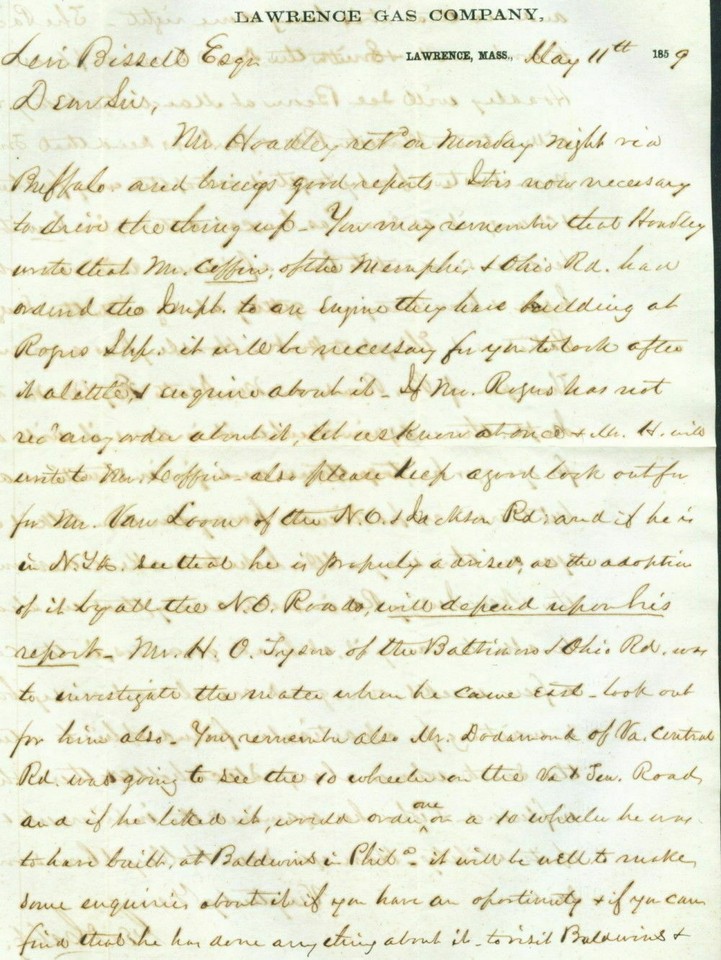 LAWRENCE GAS COMPANY,
Levi Bissell Esqr. LAWRENCE, MASS., May 11th 1859
Dear Sir,
Mr Hoadley retd on Monday night via
Buffalo. and brings good reports It is now necessary
to drive the thing up - You may remember that Hoadley
wrote that Mr. Coffin, of the Memphis & Ohio Rd. had
ordered the Impt. to an Engine they have building at
Rogers Shp. it will be necessary for you to look after
it a little, & enquire about it - If Mr. Rogers has not
recd any order about it, let us know at once & Mr. H. will
write to Mr. Coffin - also please keep a good look out for
for Mr. Van Loom of the N.O. & Jackson Rd. and if he is
in N.Yk. see that he is properly advised, as the adoption
of it by all the N.O. Roads, will depend upon his
report - Mr. H. O. Tyson of the Baltimore & Ohio Rd. was
to investigate the matter when he came East - look out
for him also - You remember also Mr. Dodamond of Va. Central
Rd. was going to see the 10 wheeler on the Va & Ten. Road,
and if he liked it, would order one on a 10 wheeler he was
to have built, at Baldwins in Phila - it will be well to make
some enquiries about it if you have an oportunity & if you can
find that he has done anything about it - to visit Baldwins &